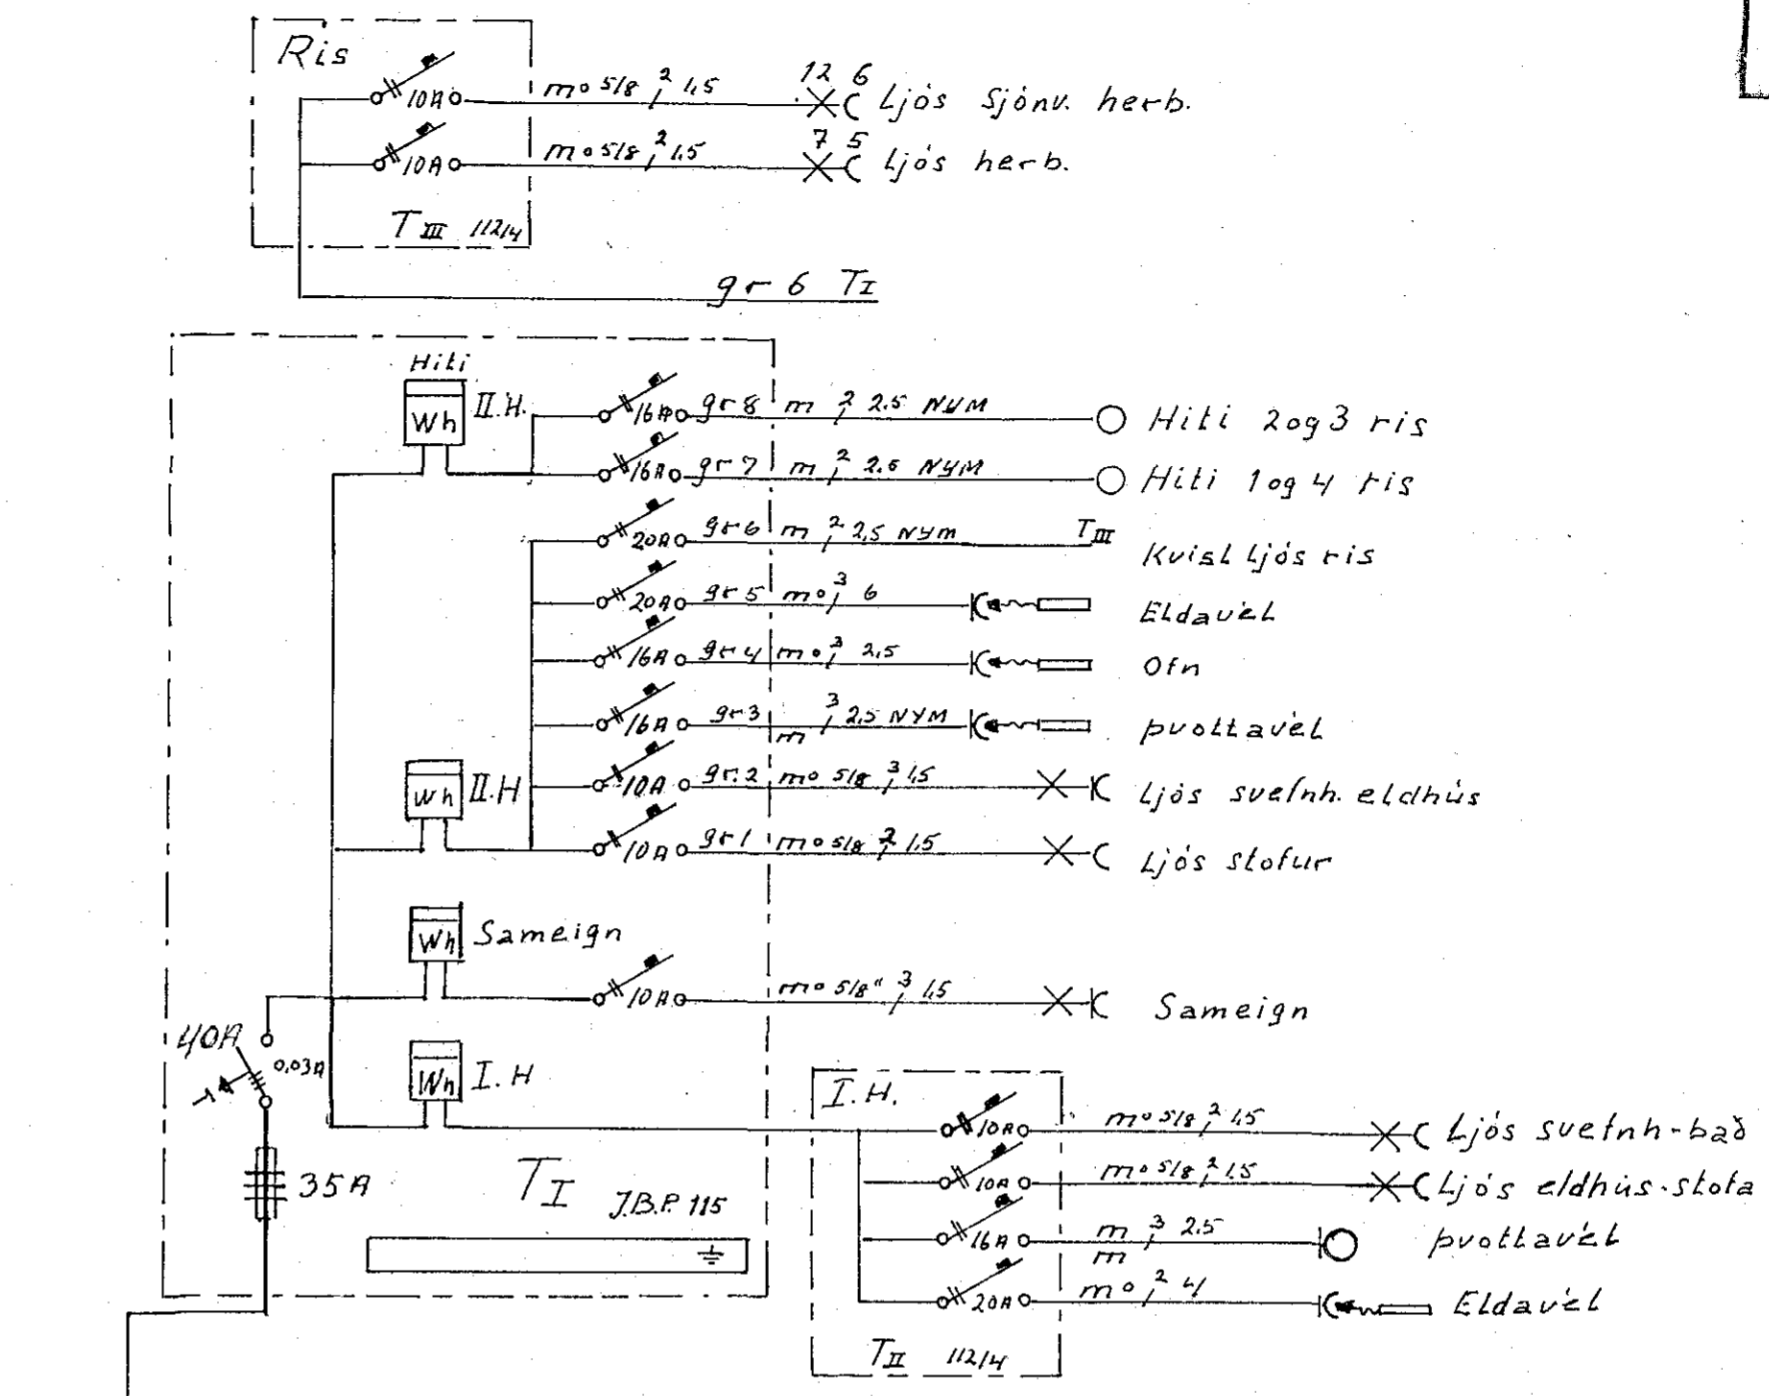 Ris
10A mo 5/8 2 1,5 12 6 Ljós Sjónv. herb.
10A mo 5/8 2 1,5 7 5 Ljós herb.
TIII 112/4
gr 6 TI
Hiti
Wh II.H. 16A gr 8 m 2 2.5 NYM Hiti 2 og 3 ris
16A gr 7 m 2 2.5 NYM Hiti 1 og 4 ris
20A gr 6 m 2 2,5 NYM TIII Kvisl Ljós ris
20A gr 5 mo 3 6 Eldavél
16A gr 4 mo 3 2,5 Ofn
16A gr 3 m 3 2,5 NYM Þvottavél
Wh II.H 10A gr. 2 mo 5/8 3 1,5 Ljós svefnh. eldhús
10A gr 1 mo 5/8 2 1,5 Ljós stofur
Wh Sameign
10A mo 5/8" 3 1,5 Sameign
40A 0,03A
Wh I.H
I.H.
10A mo 5/8 2 1,5 Ljós svefnh-bað
10A mo 5/8 2 1,5 Ljós eldhús-stofa
35A TI J.B.P. 115
16A m 3 2,5 Þvottavél
m
20A mo 2 4 Eldavél
TII 112/4